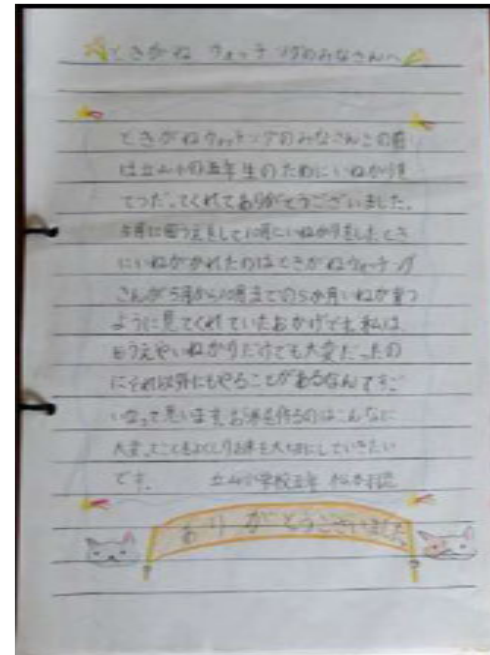 ときがね ウォッチングのみなさんへ
ときがねウォッチングのみなさんこの前
は立山小の五年生のためにいねかりを
てつだってくれてありがとうございました。
5月に田うえをして10月にいねかりをしたとき
にいねがかれたのはときがねウォッチング
さんが5月から10月までの5か月いねが育つ
ように見てくれていたおかげです。私は
田うえやいねかりだけでも大変だったの
にそれ以外にもやることがあるなんてすご
いなって思います。お米を作るのはこんなに
大変ってこともよくしりお米を大切にしていきたい
です。 立山小学校五年 松本
ありがとうございました